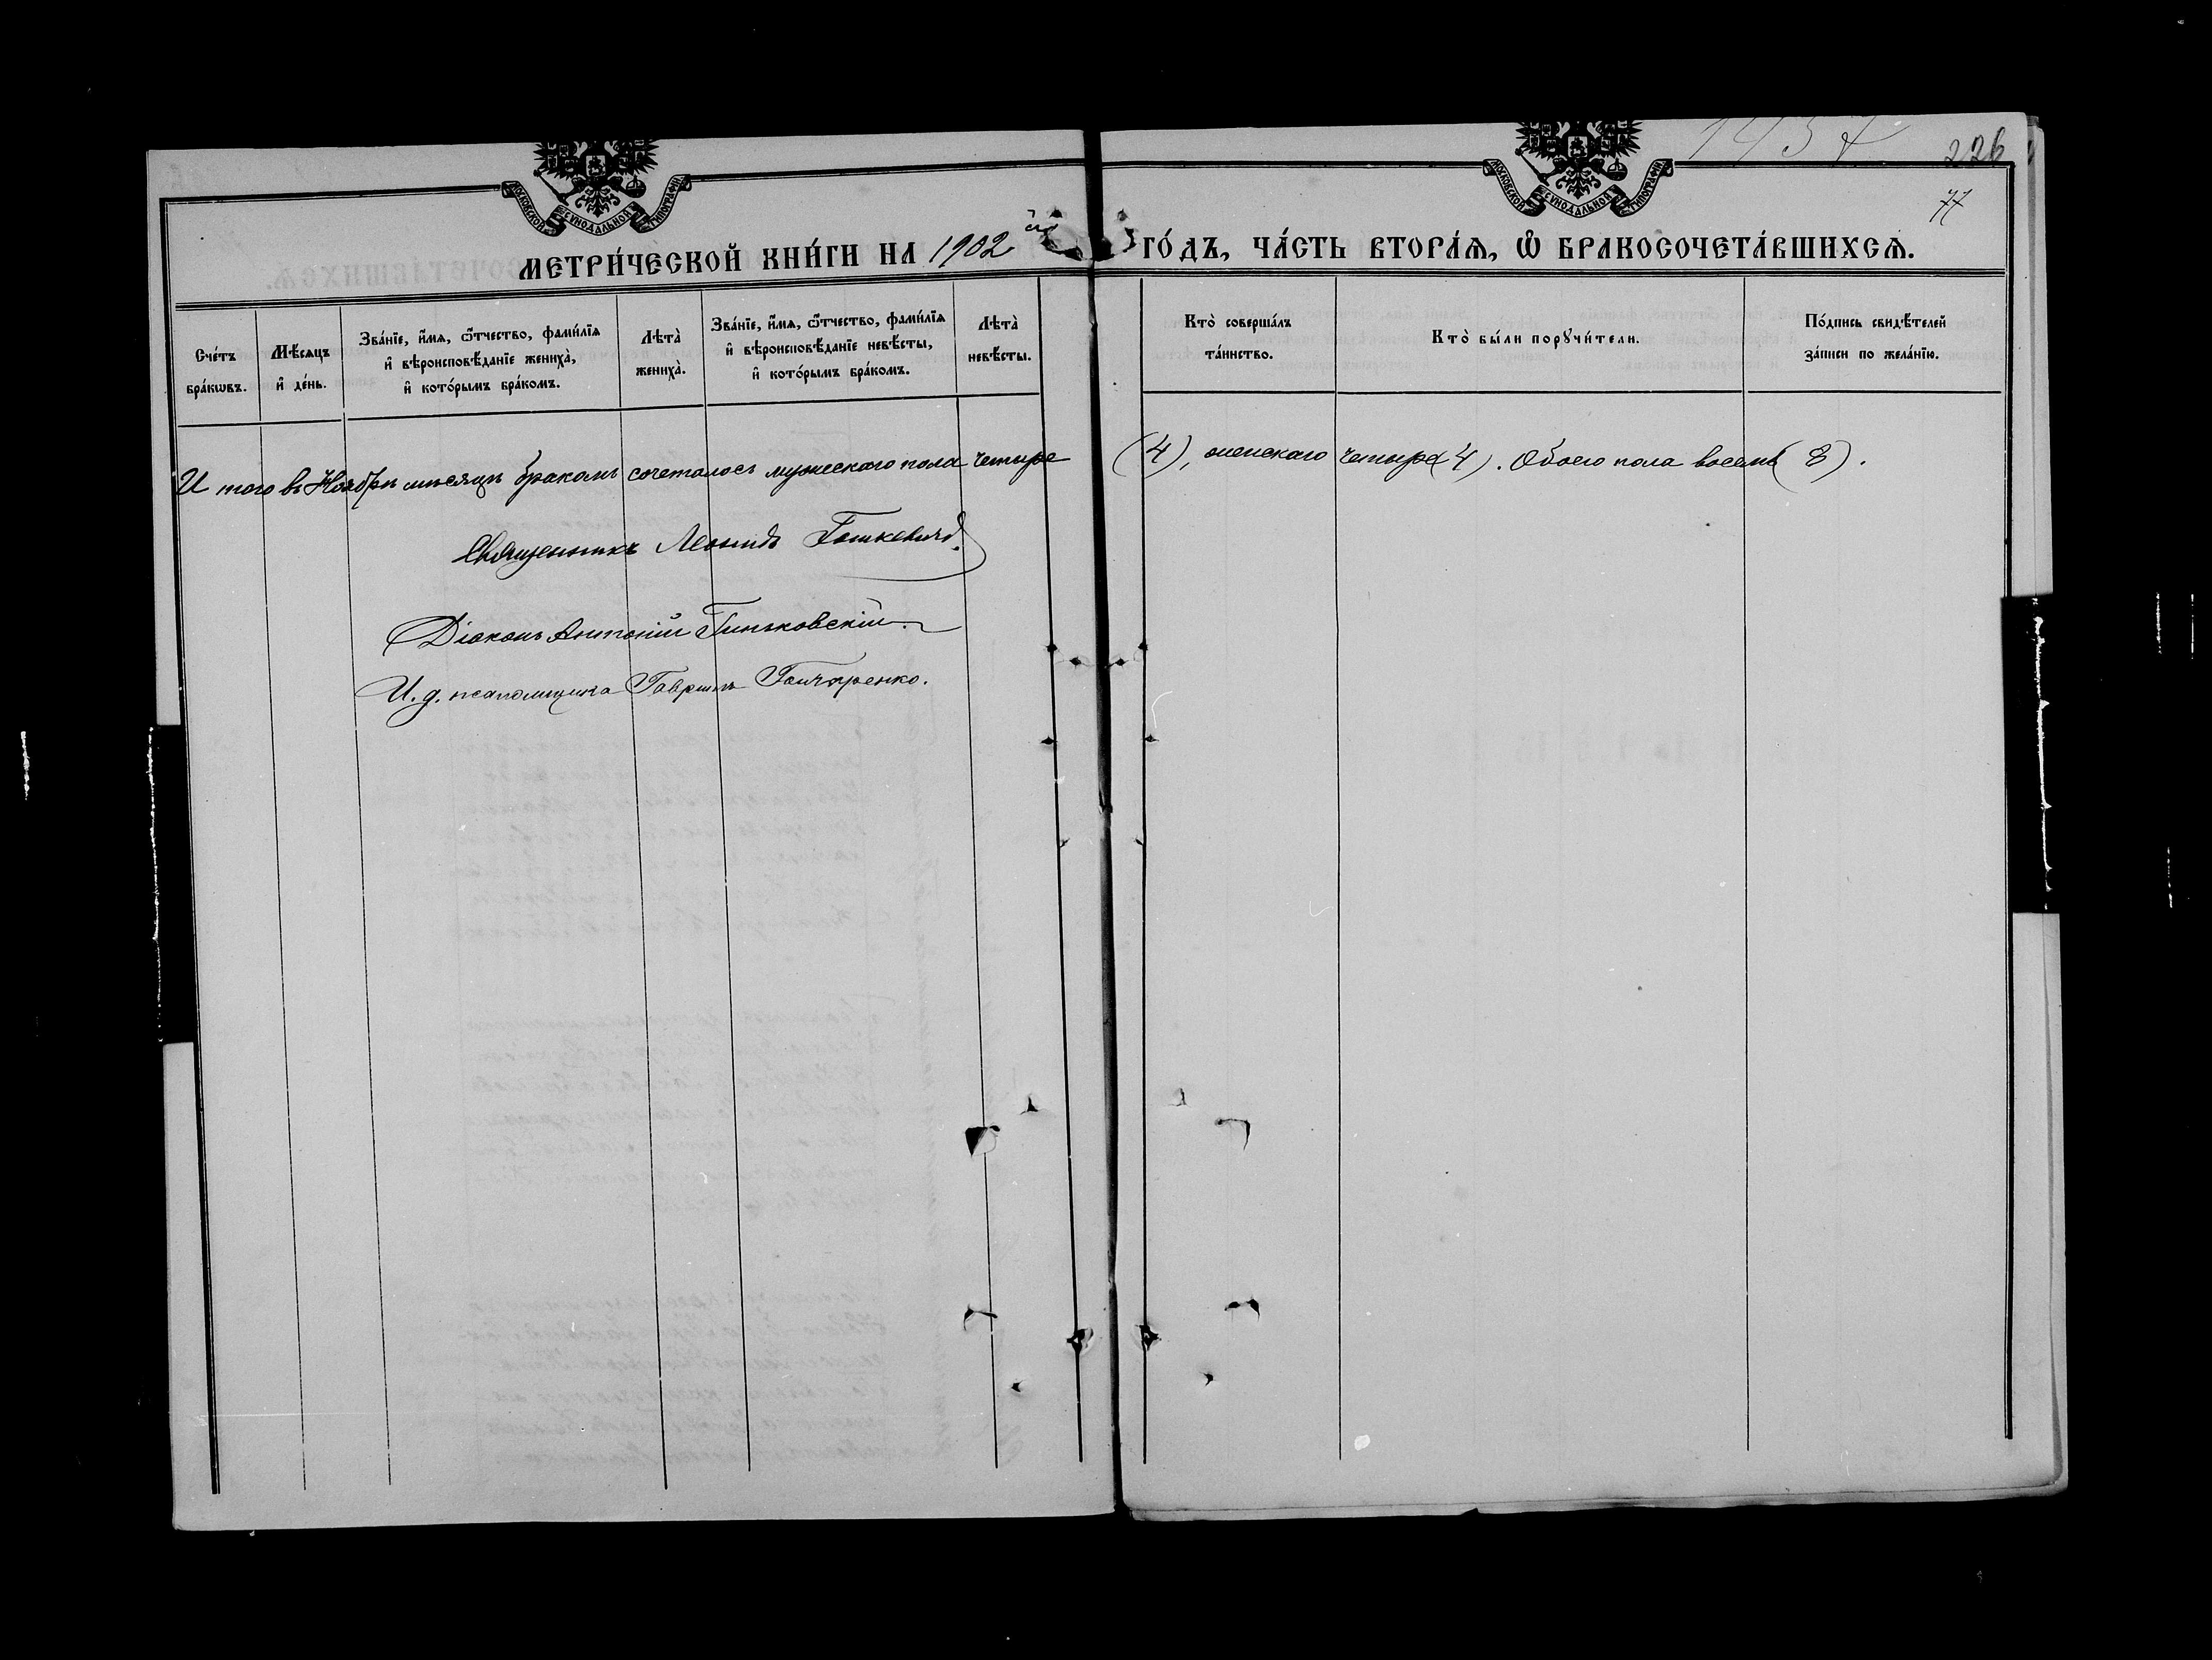 226
77
МОСКОВСКОЙ СУНОДАЛЬНОЙ ТИПОГРАФІИ
МОСКОВСКОЙ СУНОДАЛЬНОЙ ТИПОГРАФІИ
МЕТРИ́ЧЕСКОЙ КНИ́ГИ НА 1902 ГО́ДЪ, ЧА́СТЬ ВТОРА́Ѧ, Ѽ БРАКОСОЧЕТА́ВШИХСѦ.
Сче́тъ
бра́кѡвъ.
Мѣ́сяцъ
и҆ де́нь.
Зва́нїе, и҆́мя, ѻ҆́тчество, фами́лїя
и҆ вѣроисповѣ́данїе жениха̀,
и҆ кото́рымъ бра́комъ.
Лѣта̀
жениха̀.
Зва́нїе, и҆́мя, ѻ҆́тчество, фами́лїя
и҆ вѣроисповѣ́данїе невѣ́сты,
и҆ кото́рымъ бра́комъ.
Лѣта̀
невѣ́сты.
Кто̀ соверша́лъ
та́инство.
Кто̀ бы́ли порꙋчи́тели.
По́дпись свидѣ́телей
за́писи по жела́нїю.
И того въ Ноябрѣ мѣсяцѣ бракомъ сочеталось мужескаго пола четыре (4), женскаго четыре (4). Обоего пола восемь (8).
Священникъ Леонидъ Гошкевичъ.
Діаконъ Антоній Гиньковскій.
И. д. псаломщика Гавріилъ